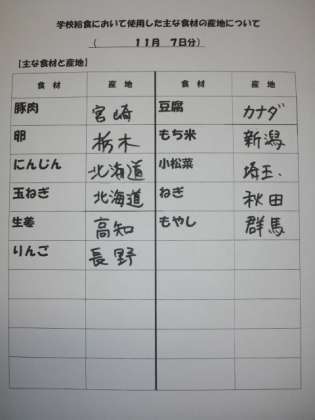 学校給食において使用した主な食材の産地について
( 11月 7日分)
【主な食材と産地】
食材 産地 食材 産地
豚肉 宮崎 豆腐 カナダ
卵 栃木 もち米 新潟
にんじん 北海道 小松菜 埼玉
玉ねぎ 北海道 ねぎ 秋田
生姜 高知 もやし 群馬
りんご 長野